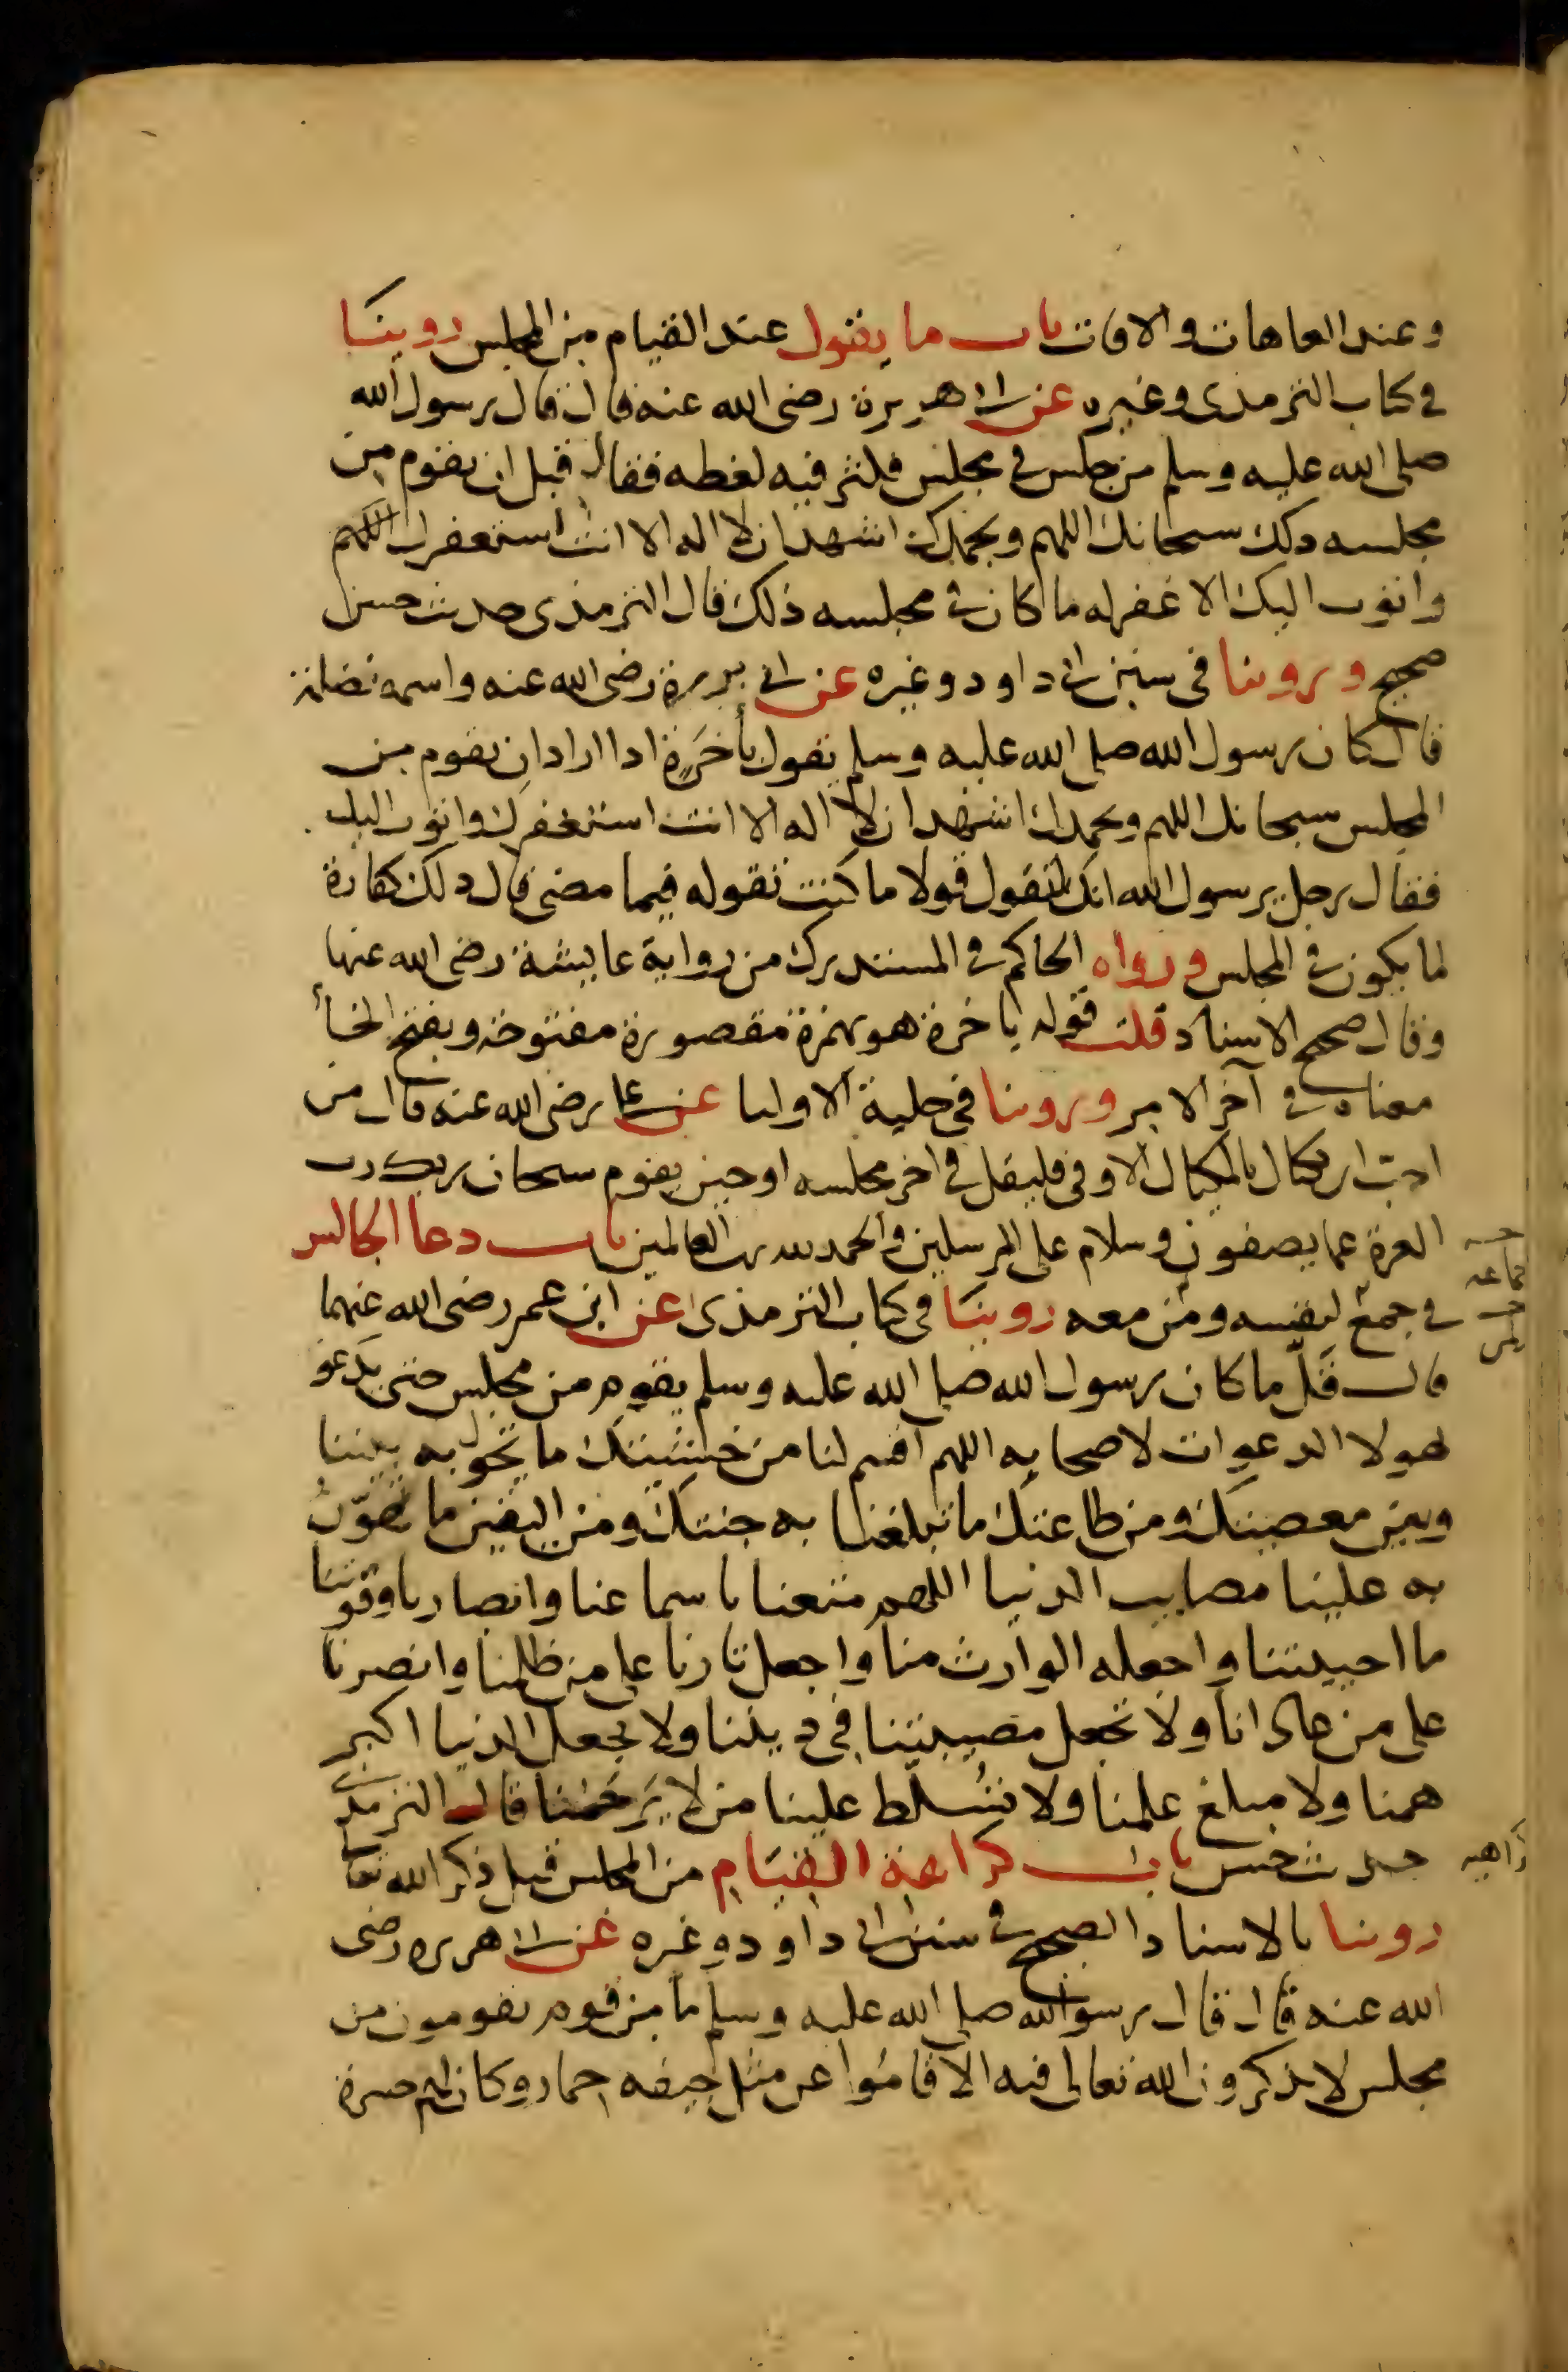 وعند العاهات والافات باب ما يقول عند القيام من المجلس روينَا
في كتاب الترمذي وغيره عن ابي هريرة رضي الله عنه قال قال رسول الله
صلي الله عليه وسلم من جلس في مجلس فكثر فيه لغطه فقال قبل ان يقوم من
مجلسه ذلك سبحانك اللهم وبحمدك اشهد ان لا اله الا انت استغفرك اللهم
واتوب اليك الا غفر له ما كان في مجلسه ذلك قال الترمذي حديث حسن
صحيح وروينا في سنن ابي داود وغيره عن ابي برزة رضي الله عنه واسمه نضلة
قال كان رسول الله صلي الله عليه وسلم يقول بأَخَرَةٍ اذا اراد ان يقوم من
المجلس سبحانك اللهم وبحمدك اشهد ان لا اله الا انت استغفرك واتوب اليك
فقال رجل يرسول الله انك لتقول قولا ما كنت تقوله فيما مضى قال ذلك كفارة
لما يكون في المجلس ورواه الحاكم في المستدرك من رواية عايشة رضي الله عنها
وقال صحيح الاسناد قلت قوله باخرة هو بهمزة مقصورة مفتوحة وبفتح الخأ
معناه في آخر الامر وروينا في حلية الاوليا عن علي رضي الله عنه قال من
احبّ ان يكتال بالمكيال الاوفى فليقل في اخر مجلسه او حين يقوم سبحان ربك رب
العزة عما يصفون وسلام على المرسلين والحمد لله رب العالمين باب دعا الجالس
في جمع لنفسه ومن معه روينَا في كتاب الترمذي عن ابن عمر رضي الله عنهما
قال قَلّ ما كان رسول الله صلي الله عليه وسلم يقوم من مجلس حتى يدعو
بهولا الدعوات لاصحابه اللهم اقسم لنا من خشيتك ما تحول به بيننا
وبين معصيتك ومن طاعتك ما تبلغنا به جنتك ومن اليقين ما تهوّنُ
به علينا مصايب الدنيا اللهم متعنا باسماعنا وابصارنا وقوتنا
ما احييتنا واجعله الوارث منا واجعل ثارنا على من ظلمنا وانصرنا
على من عادانا ولا تجعل مصيبتنا في ديننا ولا تجعل الدنيا اكبر
همنا ولا مبلغ علمنا ولا تُسلّط علينا من لا يَرحَمُنا قال الترمذي
حديث حسن باب كراهة القيَام من المجلس قبل ذكر الله تعا
روينا بالاسناد الصحيح في سنن ابي داود وغيره عن ابي هريره رضي
الله عنه قال قال رسول الله صلي الله عليه وسلم ما من قوم يقومون من
مجلس لا يذكرون الله تعالى فيه الا قاموا عن مثل جيفه حمار وكان لهم حسرة
جماعه